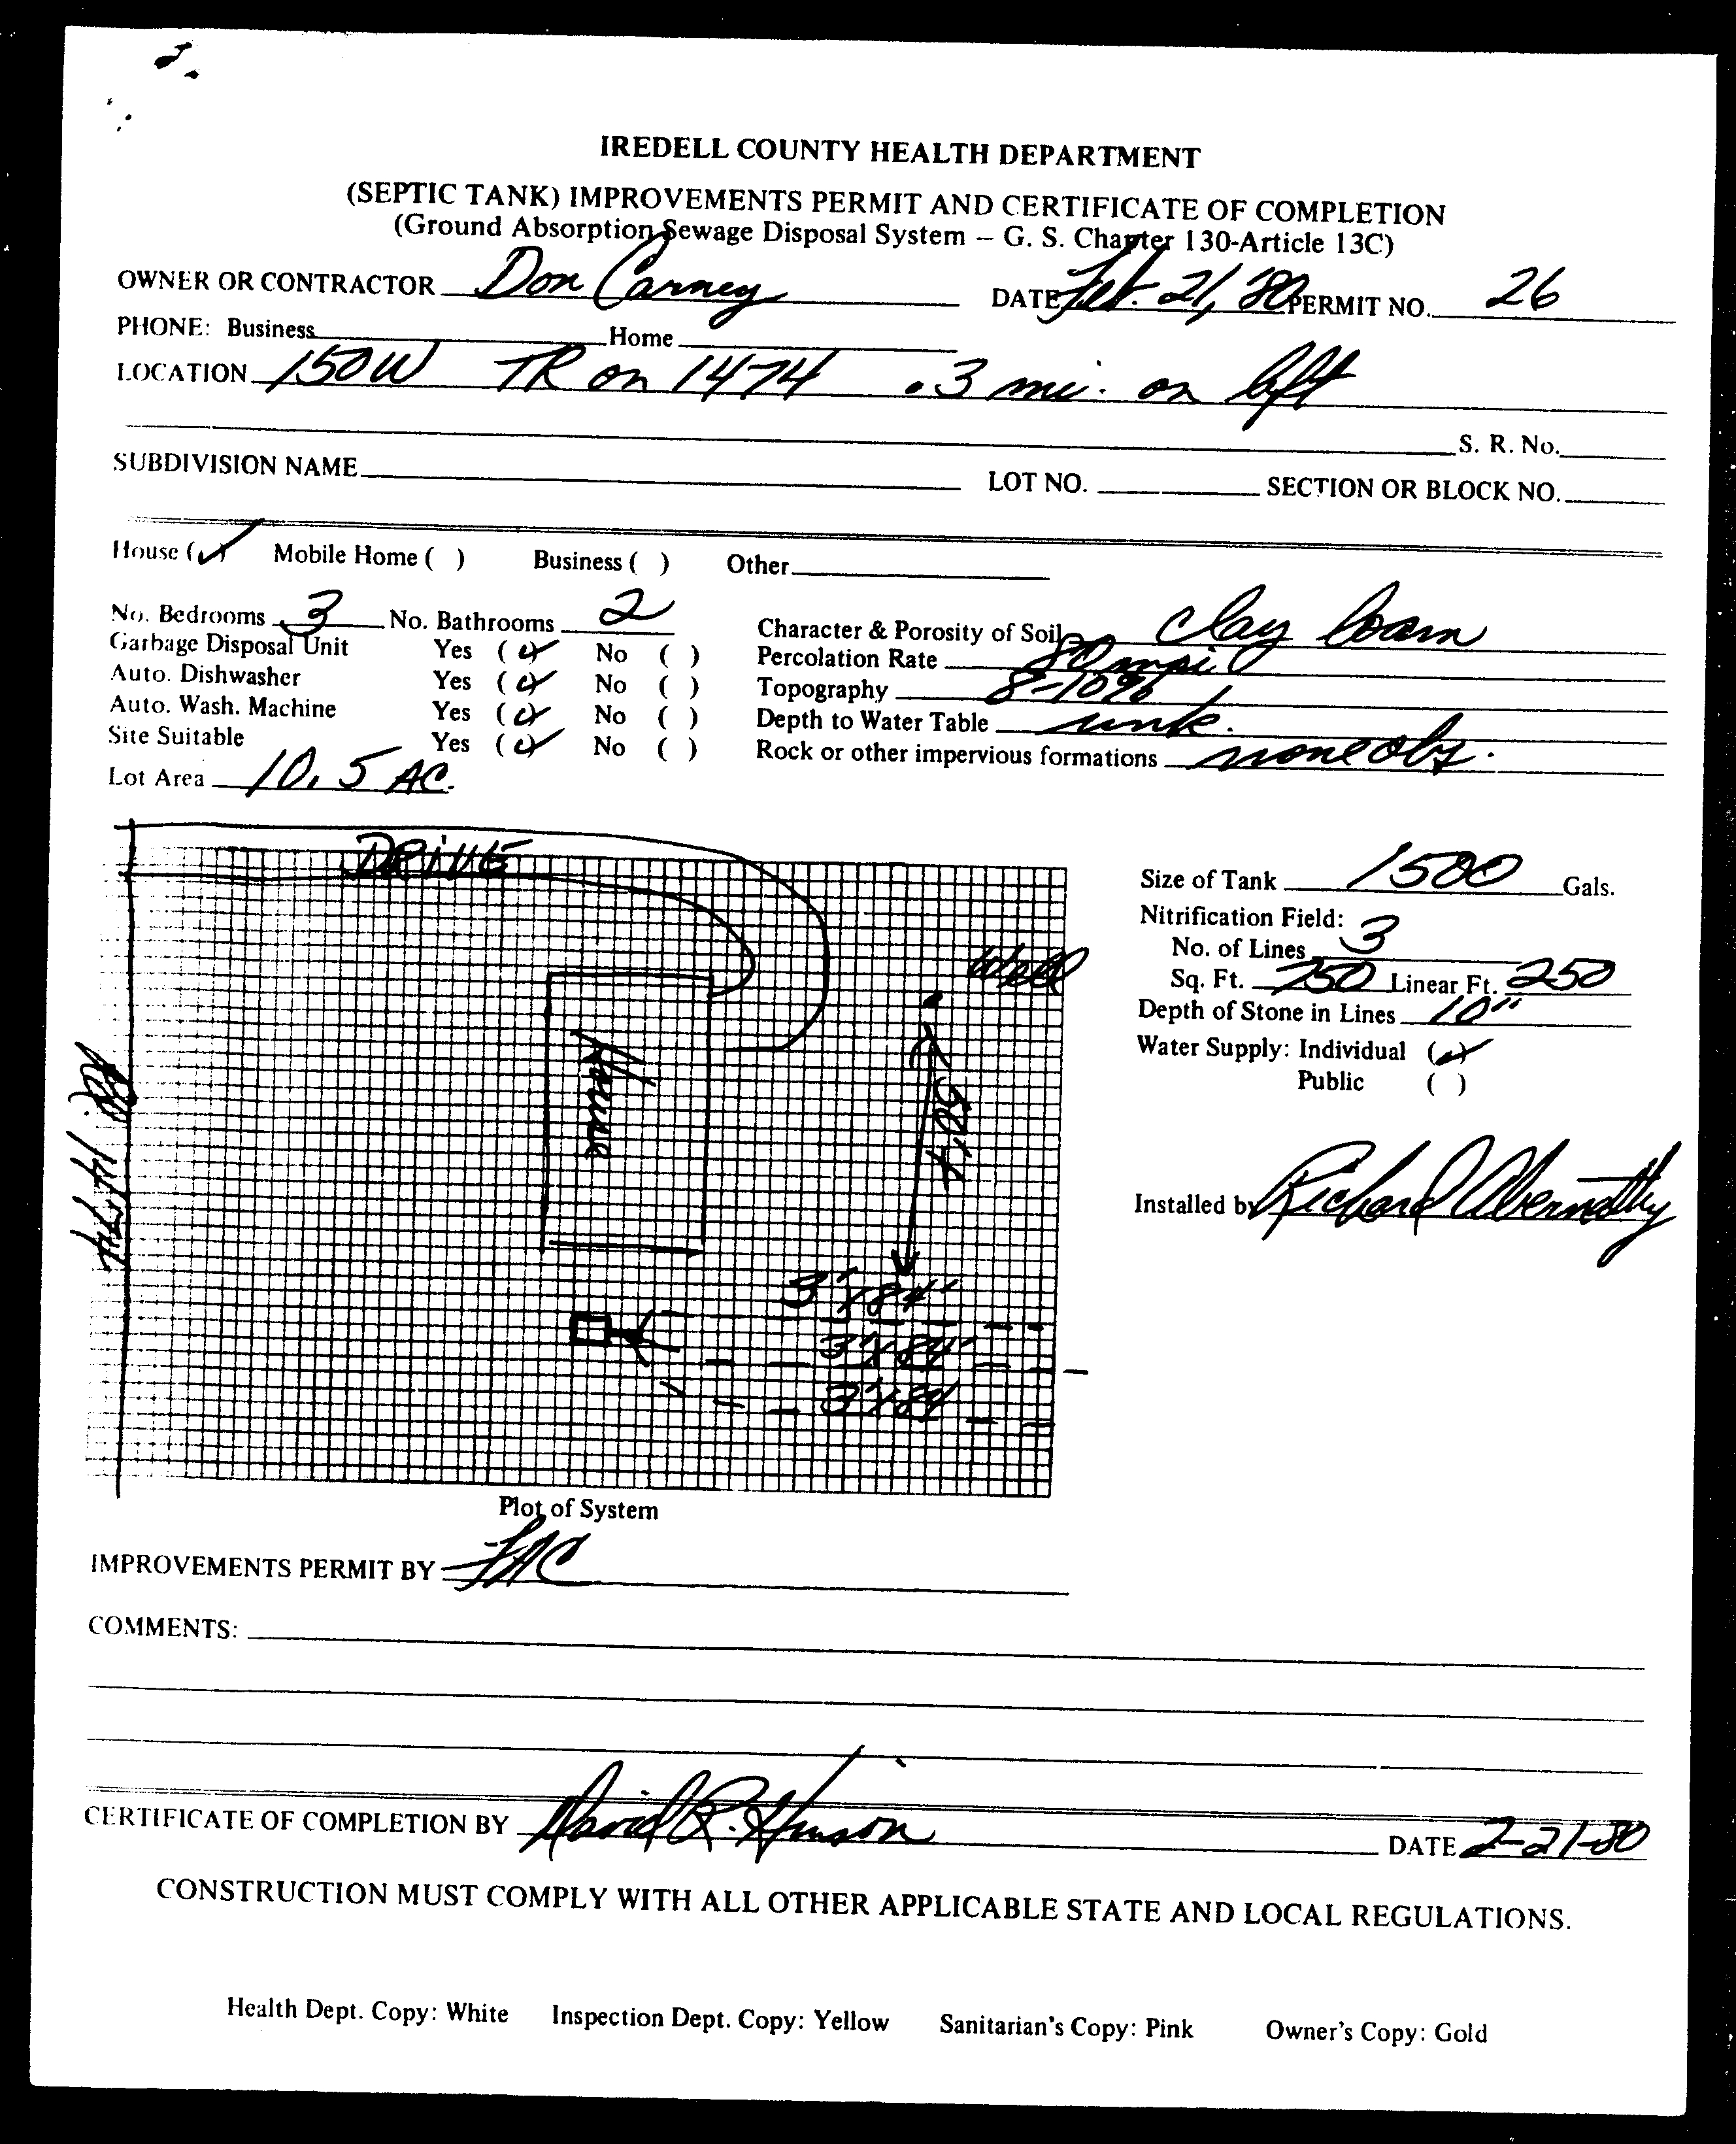 IREDELL COUNTY HEALTH DEPARTMENT
(SEPTIC TANK) IMPROVEMENTS PERMIT AND CERTIFICATE OF COMPLETION
(Ground Absorption Sewage Disposal System – G. S. Chapter 130-Article 13C)
OWNER OR CONTRACTOR Don Carney DATE Feb. 21, 80 PERMIT NO. 26
PHONE: Business Home
LOCATION 150W TR on 1474 .3 mi. on left
S. R. No.
SUBDIVISION NAME LOT NO. SECTION OR BLOCK NO.
House (✓) Mobile Home ( ) Business ( ) Other
No. Bedrooms 3 No. Bathrooms 2 Character & Porosity of Soil clay loam
Garbage Disposal Unit Yes (✓) No ( ) Percolation Rate 80 mpi
Auto. Dishwasher Yes (✓) No ( ) Topography 8-10%
Auto. Wash. Machine Yes (✓) No ( ) Depth to Water Table unk.
Site Suitable Yes (✓) No ( ) Rock or other impervious formations none obs.
Lot Area 10.5 AC.
DRIVE
Size of Tank 1500 Gals.
Nitrification Field:
No. of Lines 3
Well
Sq. Ft. 750 Linear Ft. 250
Depth of Stone in Lines 10"
House
Water Supply: Individual (✓)
Public ( )
Rd. 1474
50'+
Installed by Richard Abernathy
3'x84'
3'x84'
3'x84'
Plot of System
IMPROVEMENTS PERMIT BY
COMMENTS:
CERTIFICATE OF COMPLETION BY David R. Hinson DATE 2-21-80
CONSTRUCTION MUST COMPLY WITH ALL OTHER APPLICABLE STATE AND LOCAL REGULATIONS.
Health Dept. Copy: White Inspection Dept. Copy: Yellow Sanitarian's Copy: Pink Owner's Copy: Gold